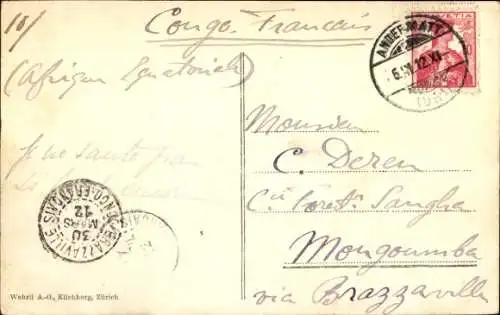 10/
Congo Francais
(Afrique Equatoriale)
HELVETIA
ANDERMATT
Monsieur
C. Deren
Cie Forest. Sangha
Mongoumba
via Brazzaville
BRAZZAVILLE
CONGO FRANÇAIS
30
MARS
12
Wehrli A.-G., Kilchberg, Zürich